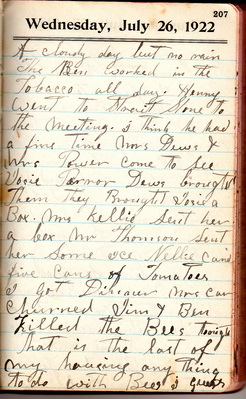 207
Wednesday, July 26, 1922
A cloudy day but no rain
The Ben worked in the
Tobacco all day. Henry
went to Strait Stone to
the meeting. I think he had
a fine time Mrs Dews &
Mrs Power come to see
Josie Mrs Dews brought
them they Brought Josie a
Box. Mrs Kellie Sent her
a box Mr Thomson Sent
her Some ice Nellie can
five Cans of Tomatoes
I got Dinner Mrs Car
churned Jim & Ben
Killed the Bees tonight
that is the last of
my having any thing
to do with Bees I guess